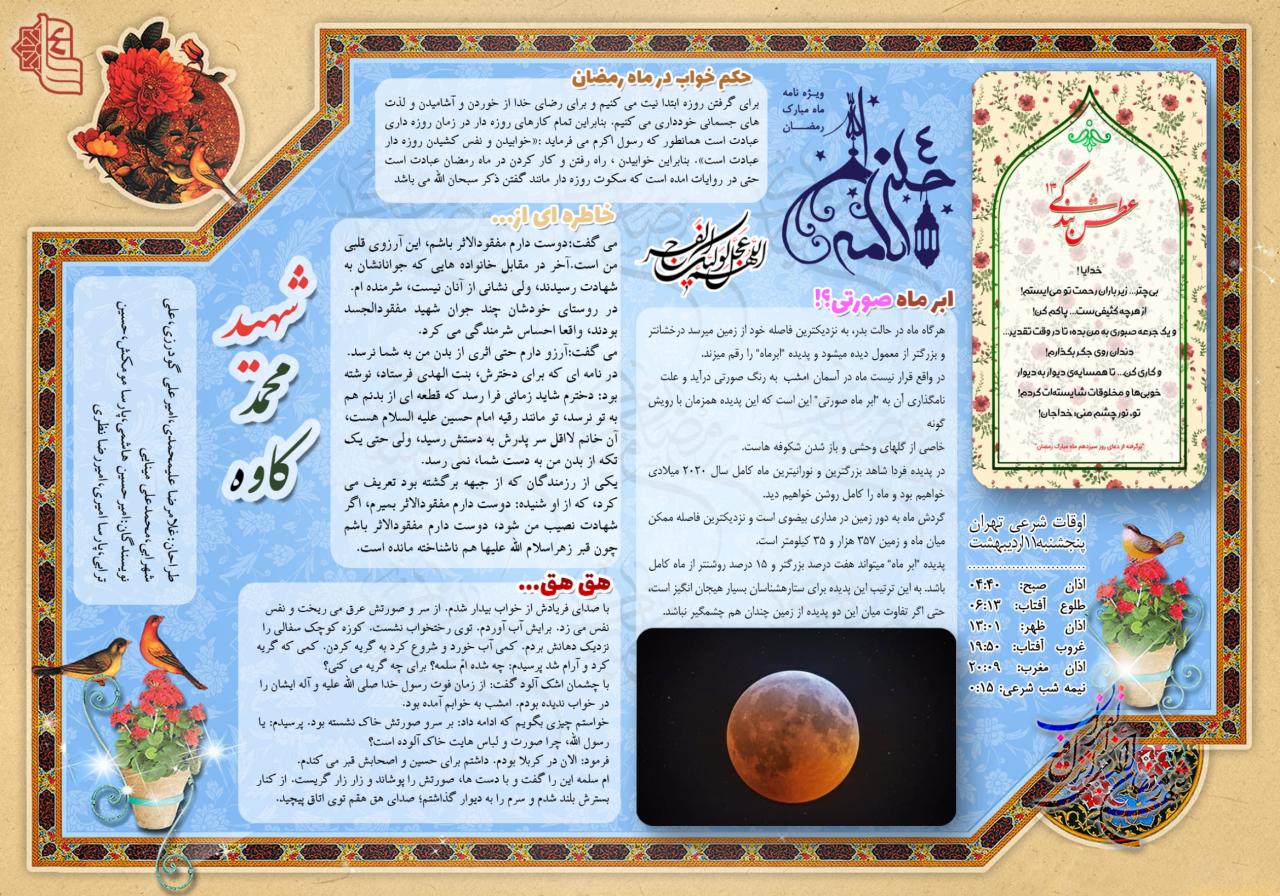 ویژه نامه
ماه مبارک
رمضــان
اللهم عجل لولیک الفرج
حکم خواب در ماه رمضان
برای گرفتن روزه ابتدا نیت می کنیم و برای رضای خدا از خوردن و آشامیدن و لذت
های جسمانی خودداری می کنیم. بنابراین تمام کارهای روزه دار در زمان روزه داری
عبادت است همانطور که رسول اکرم می فرماید :«خوابیدن و نفس کشیدن روزه دار
عبادت است». بنابراین خوابیدن ، راه رفتن و کار کردن در ماه رمضان عبادت است
حتی در روایات امده است که سکوت روزه دار مانند گفتن ذکر سبحان الله می باشد
عطر بندگی
۱۳
خدایا !
بی‌چتر... زیر باران رحمت تو می‌ایستم!
از هرچه کثیفی‌ست... پاکم کن!
و یک جرعه صبوری به من بده؛ تا در وقت تقدیر...
دندان روی جگر بگذارم!
و کاری کن... تا همسایه‌ی دیوار به دیوار
خوبی‌ها و مخلوقات شایسته‌ات گردم!
تو، نور چشم منی؛ خداجان!
"برگرفته از دعای روز سیزدهم ماه مبارک رمضان"
اوقات شرعی تهران
پنجشنبه۱۱اردیبهشت
اذان صبح: ۰۴:۴۰
طلوع آفتاب: ۰۶:۱۳
اذان ظهر: ۱۳:۰۱
غروب آفتاب: ۱۹:۵۰
اذان مغرب: ۲۰:۰۹
نیمه شب شرعی: ۰:۱۵
ابر ماه صورتی؟!
هرگاه ماه در حالت بدر، به نزدیکترین فاصله خود از زمین میرسد درخشانتر
و بزرگتر از معمول دیده میشود و پدیده "ابرماه" را رقم میزند.
در واقع قرار نیست ماه در آسمان امشب به رنگ صورتی درآید و علت
نامگذاری آن به "ابر ماه صورتی" این است که این پدیده همزمان با رویش
گونه
خاصی از گلهای وحشی و باز شدن شکوفه هاست.
در پدیده فردا شاهد بزرگترین و نورانیترین ماه کامل سال ۲۰۲۰ میلادی
خواهیم بود و ماه را کامل روشن خواهیم دید.
گردش ماه به دور زمین در مداری بیضوی است و نزدیکترین فاصله ممکن
میان ماه و زمین ۳۵۷ هزار و ۳۵ کیلومتر است.
پدیده "ابر ماه" میتواند هفت درصد بزرگتر و ۱۵ درصد روشنتر از ماه کامل
باشد. به این ترتیب این پدیده برای ستارهشناسان بسیار هیجان انگیز است،
حتی اگر تفاوت میان این دو پدیده از زمین چندان هم چشمگیر نباشد.
خاطره ای از...
می گفت:دوست دارم مفقودالاثر باشم، این آرزوی قلبی
من است.آخر در مقابل خانواده هایی که جوانانشان به
شهادت رسیدند، ولی نشانی از آنان نیست، شرمنده ام.
در روستای خودشان چند جوان شهید مفقودالجسد
بودند، واقعا احساس شرمندگی می کرد.
می گفت:آرزو دارم حتی اثری از بدن من به شما نرسد.
در نامه ای که برای دخترش، بنت الهدی فرستاد، نوشته
بود: دخترم شاید زمانی فرا رسد که قطعه ای از بدنم هم
به تو نرسد، تو مانند رقیه امام حسین علیه السلام هست،
آن خانم لااقل سر پدرش به دستش رسید؛ ولی حتی یک
تکه از بدن من به دست شما، نمی رسد.
یکی از رزمندگان که از جبهه برگشته بود تعریف می
کرد، که از او شنیده: دوست دارم مفقودالاثر بمیرم، اگر
شهادت نصیب من شود، دوست دارم مفقودالاثر باشم
چون قبر زهراسلام الله علیها هم ناشناخته مانده است.
شهید
محمد
کاوه
هق هق...
با صدای فریادش از خواب بیدار شدم. از سر و صورتش عرق می ریخت و نفس
نفس می زد. برایش آب آوردم. توی رختخواب نشست. کوزه کوچک سفالی را
نزدیک دهانش بردم. کمی آب خورد و شروع کرد به گریه کردن. کمی که گریه
کرد و آرام شد پرسیدم: چه شده امّ سلمه؟ برای چه گریه می کنی؟
با چشمان اشک آلود گفت: از زمان فوت رسول خدا صلی الله علیه و آله ایشان را
در خواب ندیده بودم. امشب به خوابم آمده بود.
خواستم چیزی بگویم که ادامه داد: بر سرو صورتش خاک نشسته بود. پرسیدم: یا
رسول الله، چرا صورت و لباس هایت خاک آلوده است؟
فرمود: الان در کربلا بودم. داشتم برای حسین و اصحابش قبر می کندم.
ام سلمه این را گفت و با دست ها، صورتش را پوشاند و زار زار گریست. از کنار
بسترش بلند شدم و سرم را به دیوار گذاشتم؛ صدای هق هقم توی اتاق پیچید.
طراحان:غلامرضا علیمحمدی،امیرعلی گودرزی،علی
شهرابی،محمدعلی مینایی
نویسندگان:امیرحسین هاشمی،پارسا مومکش،حسین
ترابی،پارسا امیری،امیررضا نظری